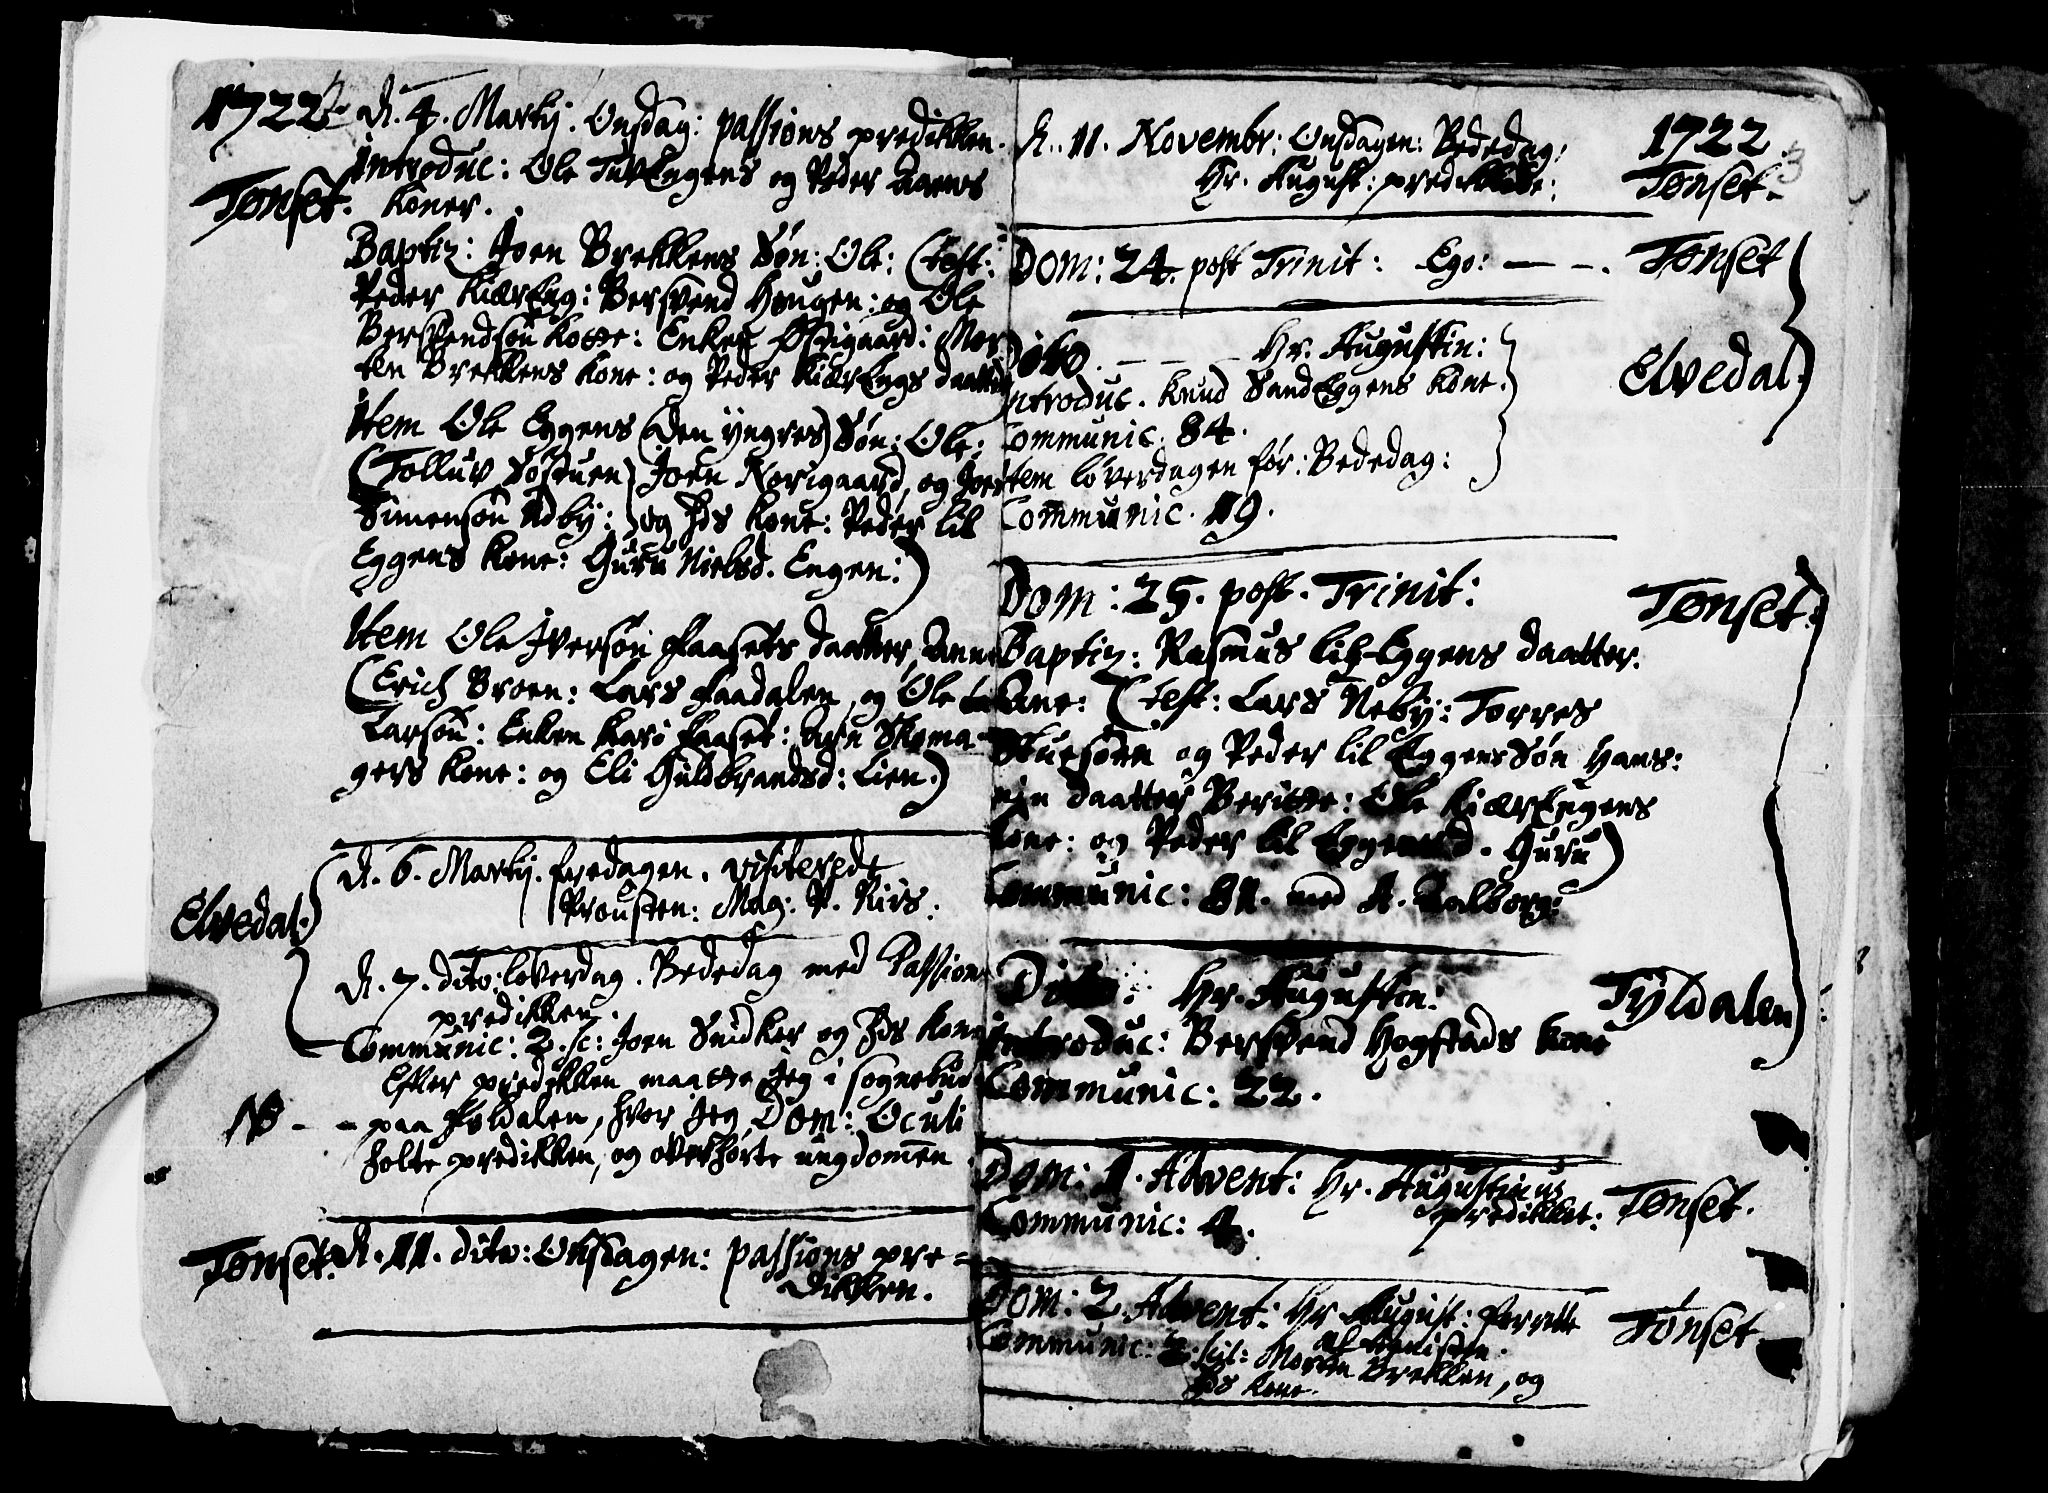 1722
d. 4. Martij. Onsdag: passions predikken.
Introduc: Ole TuvEngens og Peder Aaens
Tønset. Koner.
Baptiz: Joen Brekkens Søn: Ole: (test:
Peder KiærEng: Bersvend Haugen: og Ole
Bersvendsøn Enken Østigaard: Mor
ten Brekkens Kone: og Peder KiærEngs daatter
Item Ole Eggens (Den yngres) Søn: Ole:
(Tolluv Joen Norigaard, og
Simensøn Udby: og hs Kone: Peder lil
Eggens Kone: Guru Nielsd. Engen:)
Item Ole Iversøn Faasets daatter, Anne
(Erich Broen: Lars Faadalen, og Ole
Larsøn: Enken Kari Faaset: Skoma-
gers Kone: og Eli Guldbrandsd: Lien.)
d. 6. Martij. fredagen. visiterede
Prousten: Mag: P.
Elvedal.
d. 7. dito: løverdag. Bededag med Passions
predikken.
Communic: 2. sc: Joen Snidker og hs Kone
Efter predikken maatte jeg i sognebud
NB - - paa Foldalen, hvor jeg Dom: Oculi
holte predikken, og overhørte ungdomen
Tønset: d. 11. dito: Onsdagen: passions pre=
dikken.
d. 11. Novembr: Onsdagen: Bededag: 1722
3
Hr. August: predikkede: Tønset.
Dom: 24. post Trinit: Ego: — — . Tønset
Dito. — — — Hr. Augustin:
Elvedal.
Introduc. Knud SandEggens Kone.
Communic. 84.
Item løverdagen før: Bededag:
Communic. 19.
Dom: 25. post. Trinit: Tønset.
Baptiz: Rasmus lil-Eggens daatter.
Ane: (test: Lars Neby: Torres
og Peder lil EggensSøn Hans:
daatter Beritte: Ole KiærEngens
Kone: og Peder lil Guru)
Communic: 81. med A. Aalborg:
Dito: Hr. Augustin: Tyldalen
Introduc: Bersvend Hogstads Kone
Communic: 22.
Dom: 1. Advent: Hr. Augustinus
predikket: Tønset.
Communic: 4.
Dom: 2. Advent: Hr August: forrette
Tønset
Communic: 2. scil: Morten Brekken, og
hs Kone.